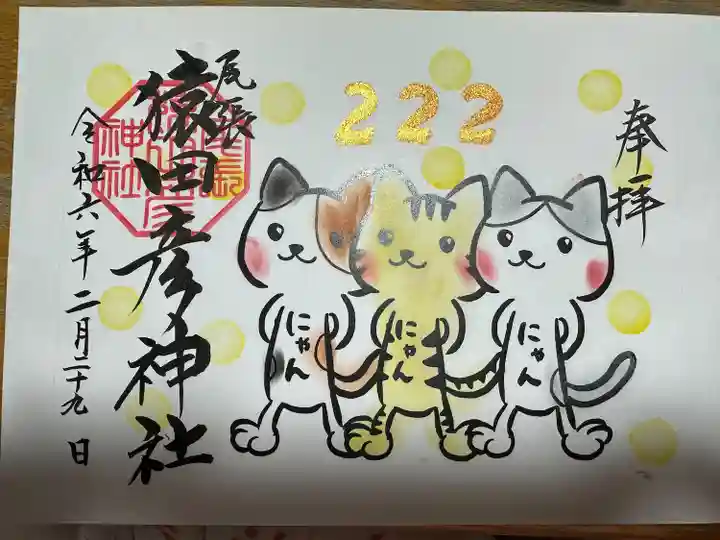 奉拝
222
にゃん
にゃん
にゃん
尾張
猿田彦神社
令和六年二月二十九日